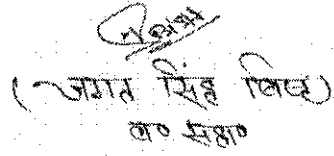 (जगत सिंह बिष्ट)
व० सहा०